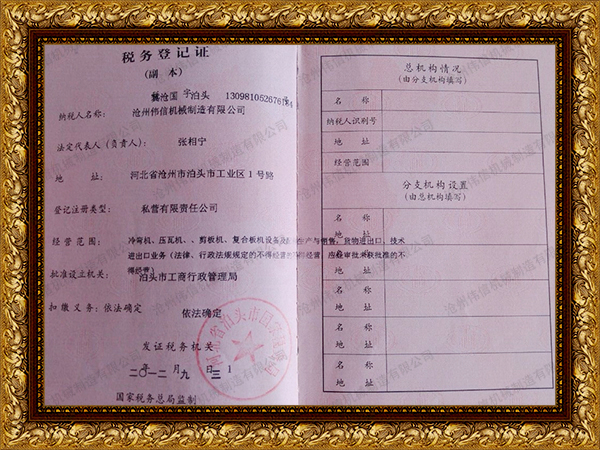 税务登记证
(副 本)
冀沧国 字 泊头 130981052676184
纳税人名称: 沧州伟信机械制造有限公司
法定代表人(负责人): 张相宁
地 址: 河北省沧州市泊头市工业区1号路
登记注册类型: 私营有限责任公司
经 营 范 围: 冷弯机、压瓦机、、剪板机、复合板机设备及配件生产与销售,货物进出口、技术
进出口业务(法律、行政法规规定的不得经营的不得经营,应经审批未获批准的不
得经营)
批准设立机关: 泊头市工商行政管理局
扣 缴 义 务: 依法确定
依法确定
发 证 税 务 机 关
二〇一二 年 九 月 三 日
国家税务总局监制
总 机 构 情 况
(由分支机构填写)
名 称
纳税人识别号
地 址
经营范围
分 支 机 构 设 置
(由总机构填写)
名 称
地 址
名 称
地 址
名 称
地 址
名 称
地 址
名 称
地 址
沧州伟信机械制造有限公司